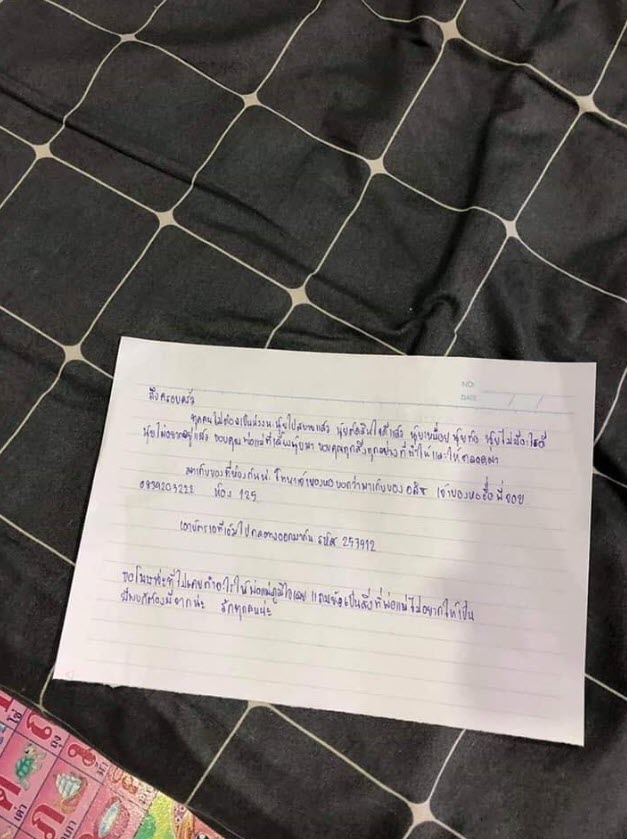 ถึงครอบครัว
NO.
DATE / /
ทุกคนไม่ต้องเป็นห่วงนะ นุ้ยไปสบายแล้ว นุ้ยตัดสินใจดีแล้ว นุ้ยเหนื่อย นุ้ยท้อ นุ้ยไม่มีอะไรดี
นุ้ยไม่อยากอยู่แล้ว ขอบคุณพ่อแม่ที่เลี้ยงนุ้ยมา ขอบคุณทุกสิ่งทุกอย่างที่ทำให้และให้ตลอดมา
มาเก็บของที่ห้องกันน่ โทหาเจ้าของหอ บอกว่ามาเก็บของ เจ้าของหอชื่อ พี่จอย
ห้อง 125
เอาบัตรเอทีเอ็มไปกดตังออกมากัน รหัส 253912
ขอโทษน่ะที่ไม่เคยทำอะไรให้พ่อแม่ภูมิใจเลย แถมยังเป็นสิ่งที่พ่อแม่ไม่อยากให้เป็น
รักทุกคนน่ะ